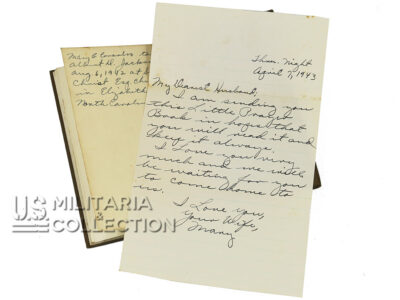 Mary E Consolvo to
Albert D. Jackson
Aug 6, 1942 at
Christ Esq. Ch
in Elizabeth
North Carolina
Thur. Night
April 7, 1943
My Dearest Husband,
I am sending you
this Little Prayer
Book in hopes that
your will read it and
keep it always.
I love you very
much and me will
be waiting for you
to come home to
us.
I Love you,
Your Wife,
Mary
U.S. MILITARIA
COLLECTION